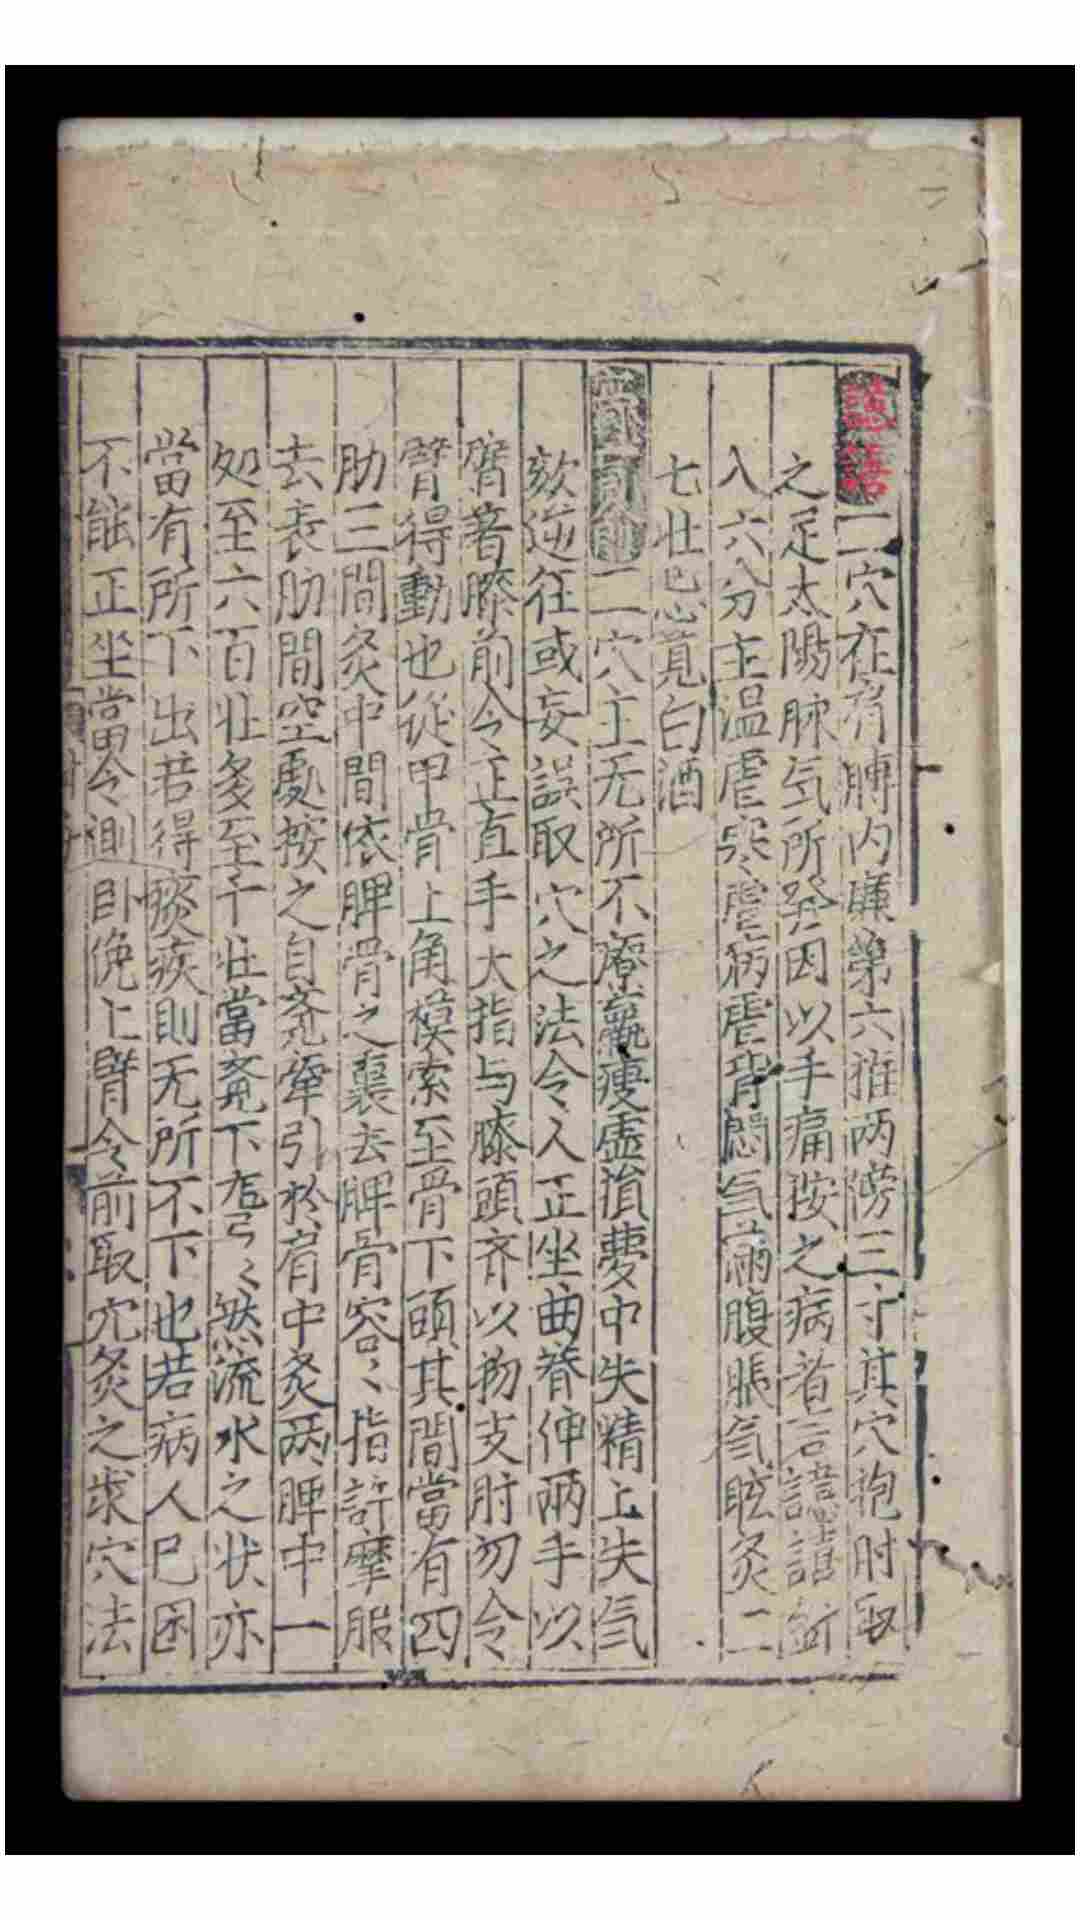 譩譆二穴在肓膊内廉第六椎两傍三寸其穴抱肘取
之足太陽脉氣所發因以手痛按之病者言譩譆針
入六分主温虐寒虐病虐背悶气滿腹脹气眩灸二
七壯忌莧白酒
膏肓腧二穴主无所不療羸瘦虚損夢中失精上失气
欬逆狂或妄誤取穴之法令人正坐曲脊伸两手以
臂著膝前令正直手大指与膝頭齐以物支肘勿令
臂得動也從甲骨上角摸索至骨下頭其間當有四
肋三間灸中間依胛骨之裏去胛骨容〻指許摩服
去表肋間空䖏按之自觉牽引於肩中灸两胛中一
処至六百壯多至千壯當觉下 〻然流水之状亦
當有所下出若得痰疾則无所不下也若病人已困
不能正坐當令側卧俛上臂令前取穴灸之求穴法